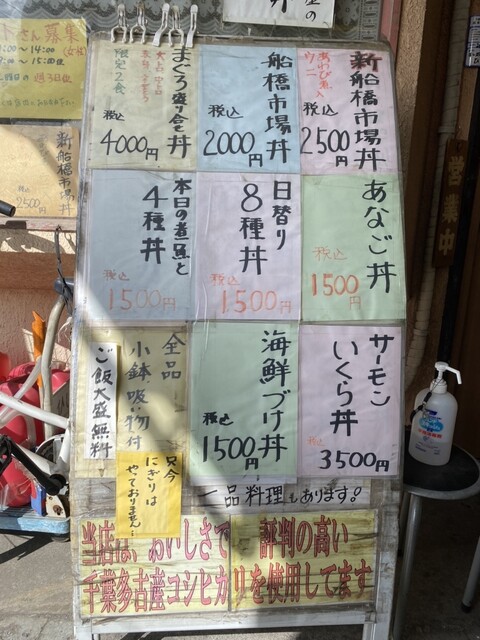 座の
丼
新船橋市場丼
あわび煮入
ウニ
税込
2500円
船橋市場丼
税込
2000円
まぐろ盛り合せ丼
限定2食
税込
4000円
あなご丼
税込
1500円
日替り
8種丼
税込
1500円
本日の煮魚と
4種丼
税込
1500円
サーモン
いくら丼
税込
3500円
海鮮づけ丼
税込
1500円
全品
小鉢、吸い物付
ご飯大盛無料
只今
にぎりは
やっておりません…
一品料理もあります!
当店は、おいしさで評判の高い
千葉多古産コシヒカリを使用してます
さん募集
14:00
15:00
週3日位
新船橋市場丼
2500円
営業中